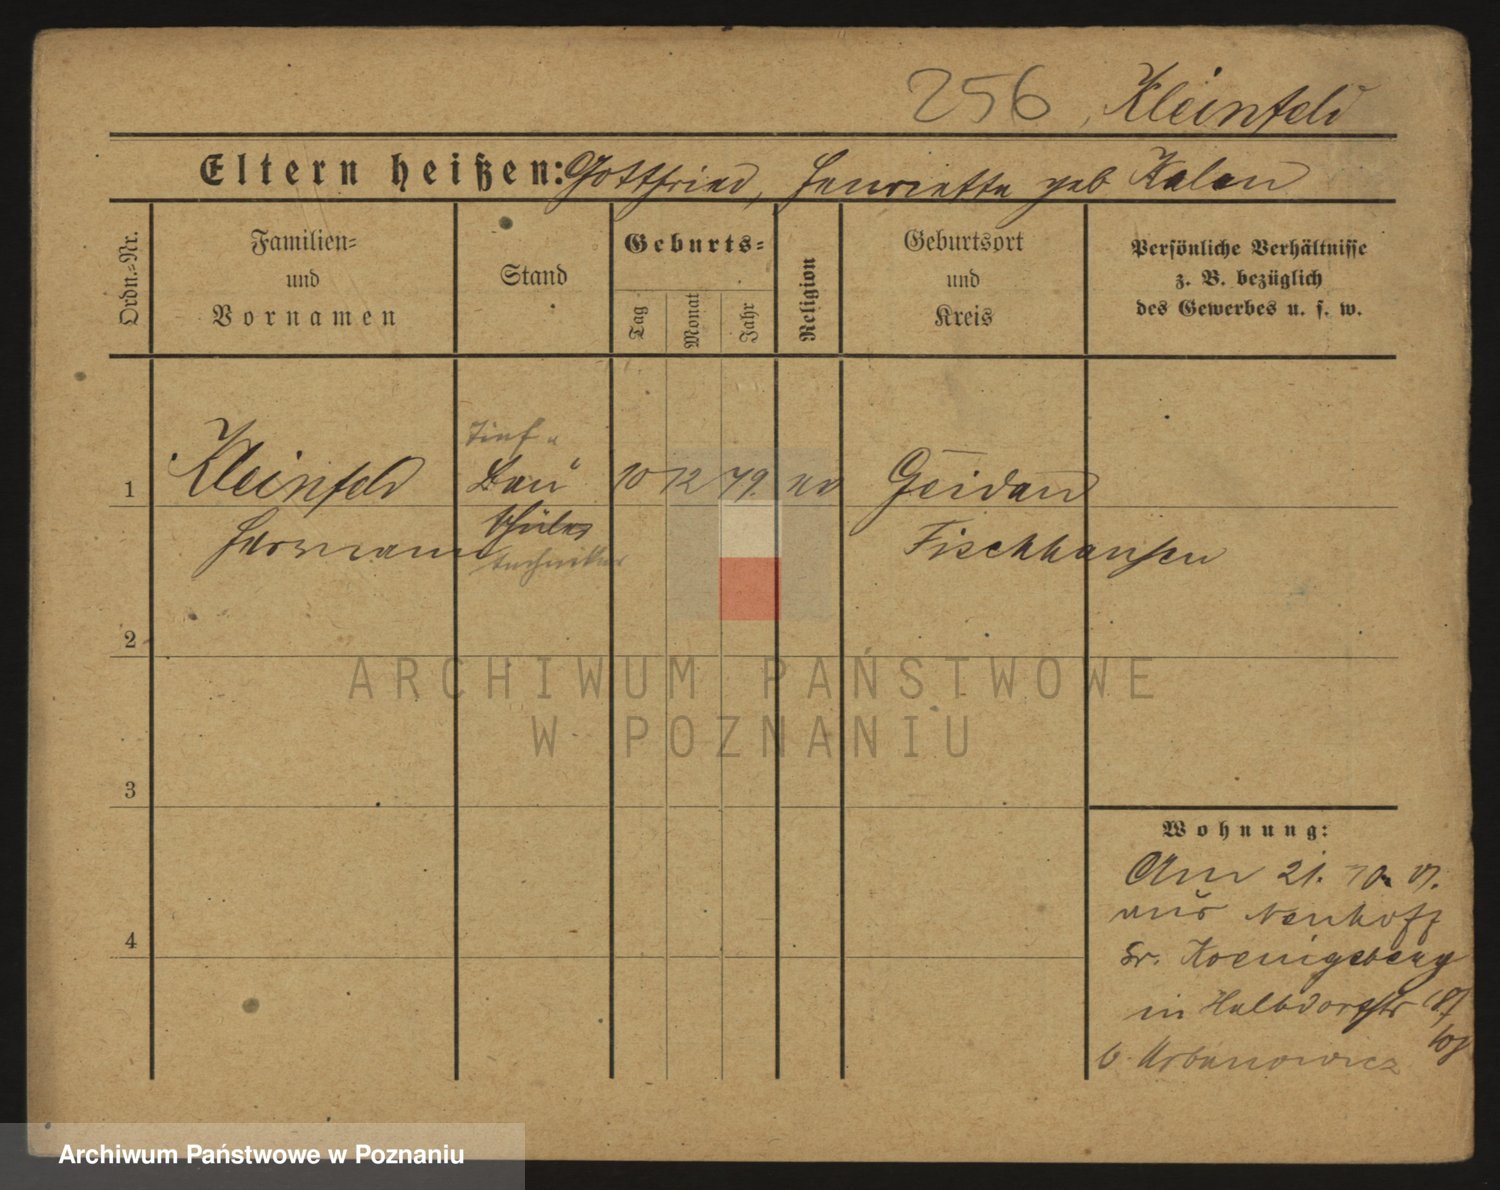 256, Kleinfeld
Eltern heißen: Gottfried, Henriette geb Kalan
Ordn.-Nr.
Familien-
und
Vornamen
Stand
Geburts-
Tag
Monat
Jahr
Religion
Geburtsort
und
Kreis
Persönliche Verhältnisse
z. B. bezüglich
des Gewerbes u. s. w.
Tief u
1 Kleinfeld Bau 10 12 79. ev Geidau
Hermann schüler Fischhausen
techniker
2
3
4
Wohnung:
Am 21. 10. 07.
aus Neuhoff
Kr. Koenigsberg
in Halbdorfstr
b. Urbanowicz
ARCHIWUM PAŃSTWOWE
W POZNANIU
Archiwum Państwowe w Poznaniu